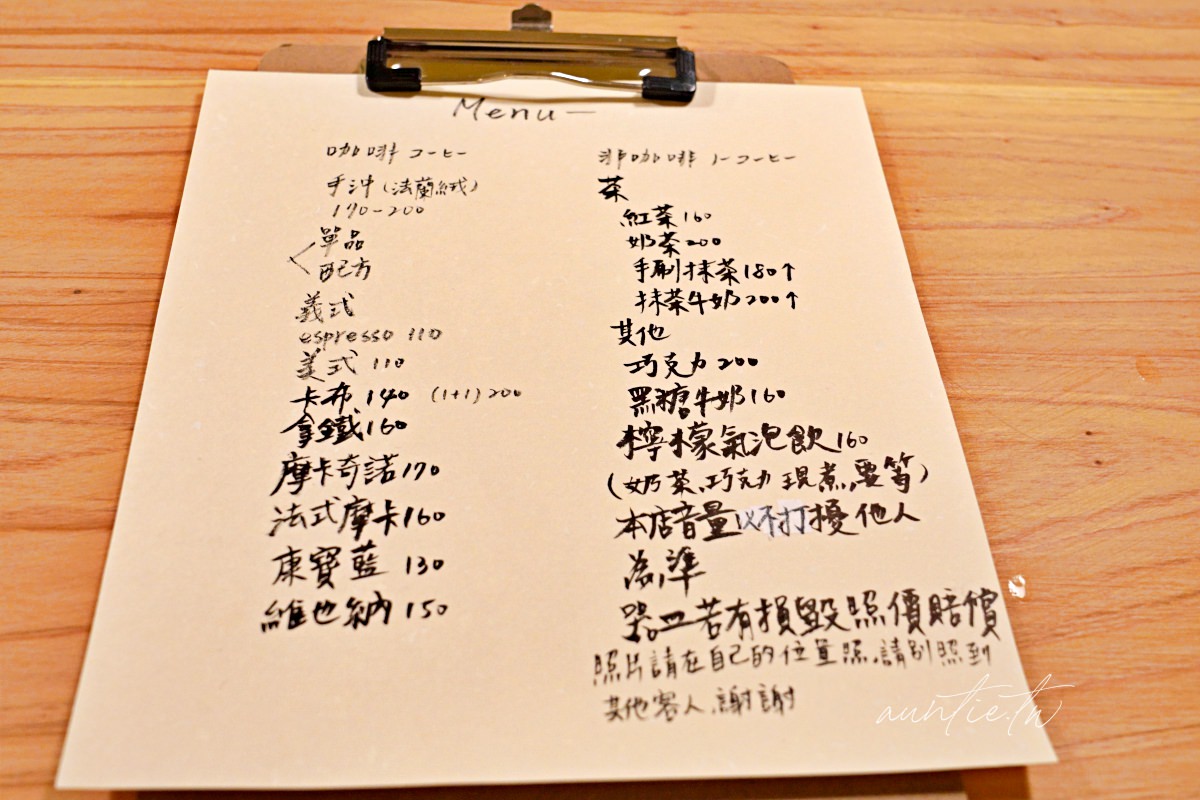 Menu—
咖啡 コーヒー
手沖(法蘭絨)
190-200
單品
配方
義式
espresso 110
美式 110
卡布 140 (1+1) 200
拿鐵 160
摩卡奇諾 170
法式摩卡 160
康寶藍 130
維也納 150
非咖啡 ノーコーヒー
茶
紅茶 160
奶茶 200
手刷抹茶 180↑
抹茶牛奶 200↑
其他
巧克力 200
黑糖牛奶 160
檸檬氣泡飲 160
(奶茶、巧克力 現煮,要等)
本店音量以不打擾他人
為準
器皿若有損毀照價賠償
照片請在自己的位置照,請別照到
其他客人,謝謝
auntie.tw